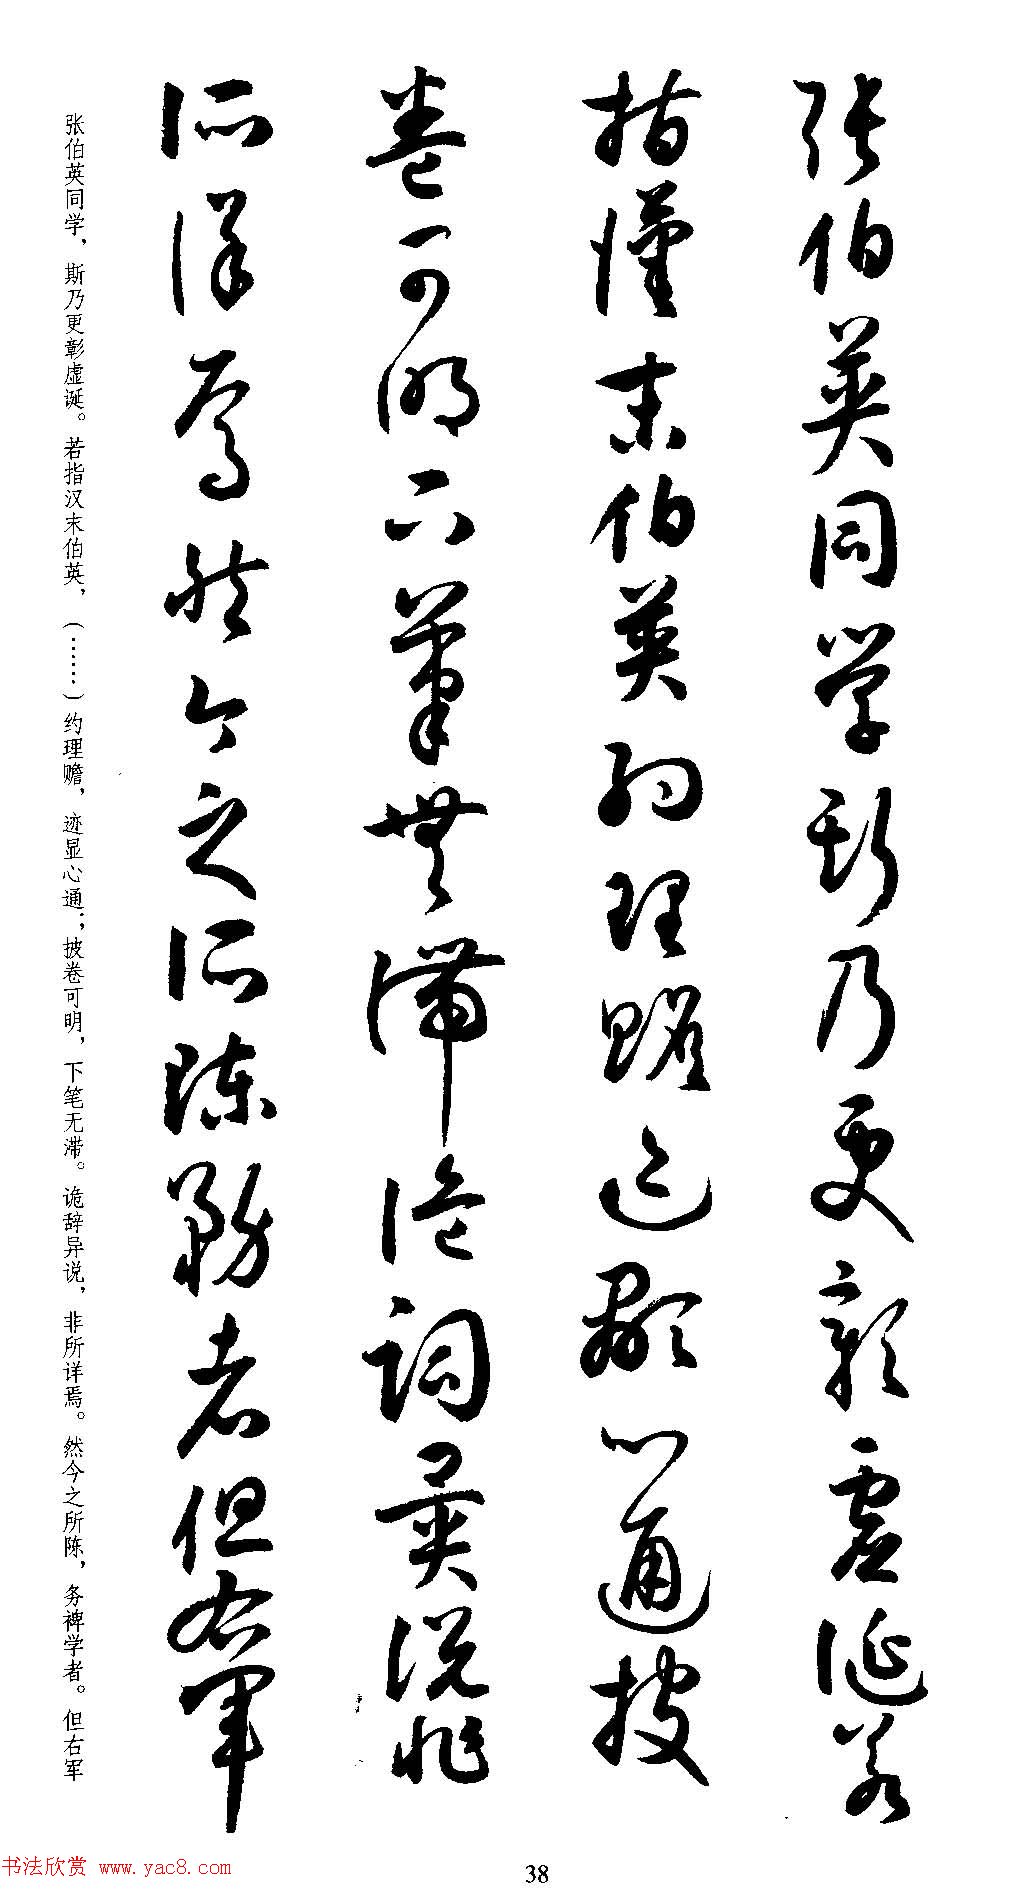 張伯英同學斯乃更彰虛誕若
指漢末伯英約理贍迹顯心通披
卷可明下筆無滯詭詞異説非
所詳焉然今之所陳務者但右軍
张伯英同学，斯乃更彰虚诞。若指汉末伯英，（……）约理赡，迹显心通；披卷可明，下笔无滞。诡辞异说，非所详焉。然今之所陈，务裨学者。但右军
书法欣赏 www.yac8.com
38